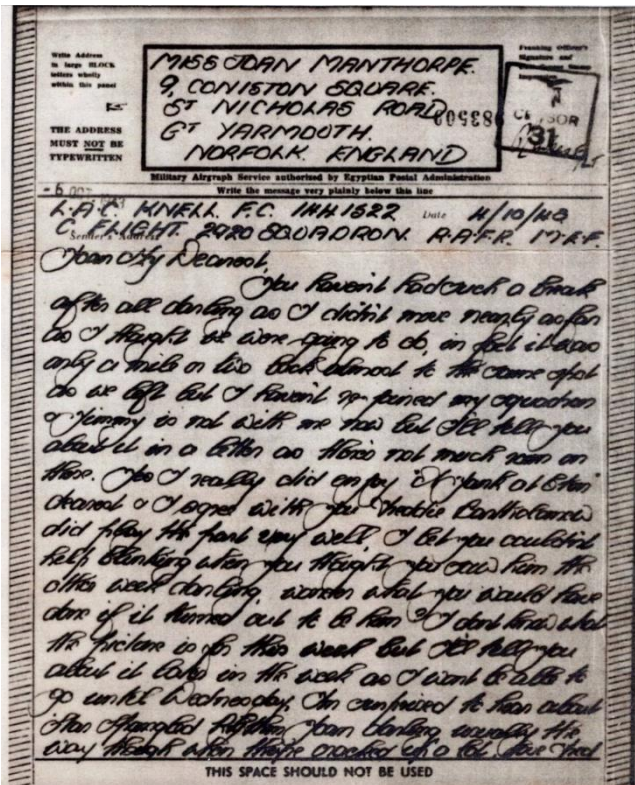 Write Address
in large BLOCK
letters wholly
within this panel
THE ADDRESS
MUST NOT BE
TYPEWRITTEN
MISS JOAN MANTHORPE.
9, CONISTON SQUARE.
ST NICHOLAS ROAD
GT YARMOUTH.
NORFOLK. ENGLAND
983508
CENSOR
31
Military Airgraph Service authorised by Egyptian Postal Administration
Write the message very plainly below this line
L.A.C. KNELL. F.C. 1441522 Date 4/10/43
C. FLIGHT. 2920 SQUADRON. R.A.F.R. M.E.F.
Sender's Address
Joan My Dearest,
You haven't had such a break
after all darling as I didn't move nearly as far
as I thought we were going to do, in fact it was
only a mile or two back almost to the same spot
as we left but I haven't re-joined my squadron
& Jimmy is not with me now but I'll tell you
about it in a letter as there's not much room on
these. Yes I really did enjoy "A Yank at Eton"
dearest & I agree with you Freddie Bartholomew
did play the part very well. I bet you couldn't
help blinking when you thought you saw him the
other week darling, wonder what you would have
done if it turned out to be him? I dont know what
the picture is for this week but I'll tell you
about it later in the week as I wont be able to
go until Wednesday. I'm surprised to hear about
Star Spangled Rhythm Joan darling, usually the
way though when they're cracked up a lot. Love Fred
THIS SPACE SHOULD NOT BE USED